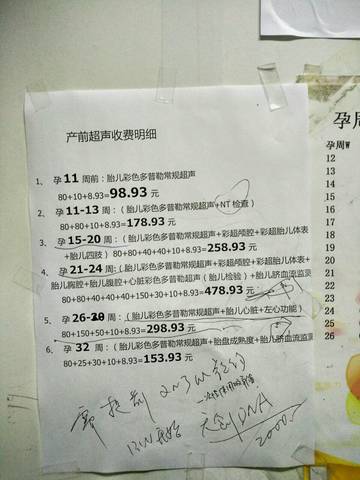 产前超声收费明细
1、孕 11 周前：胎儿彩色多普勒常规超声
80+10+8.93=98.93 元
2、孕 11-13 周：（胎儿彩色多普勒常规超声+NT 检查）
80+80+10+8.93=178.93 元
3、孕 15-20 周：（胎儿彩色多普勒常规超声+彩超颅腔+彩超胎儿体表
+胎儿四肢）80+80+40+40+10+8.93=258.93 元
4、孕 21-24 周：（胎儿彩色多普勒常规超声+彩超颅腔+彩超胎儿体表+
胎儿胸腔+胎儿腹腔+心脏彩色超声（胎儿检验）+胎儿脐血流监测
80+80+40+40+40+150+30+10+8.93=478.93 元
5、孕 26-28 周：（胎儿彩色多普勒常规超声+胎儿心脏+左心功能）
80+150+50+10+8.93=298.93 元
6、孕 32 周：（胎儿彩色多普勒常规超声+胎盘成熟度+胎儿脐血流监测
80+25+30+10+8.93=153.93 元
提前 2~3W 预约
12W开始
无创DNA
2000
孕周
孕周W
12
13
14
15
16
17
18
19
20
21
22
23
24
25
26